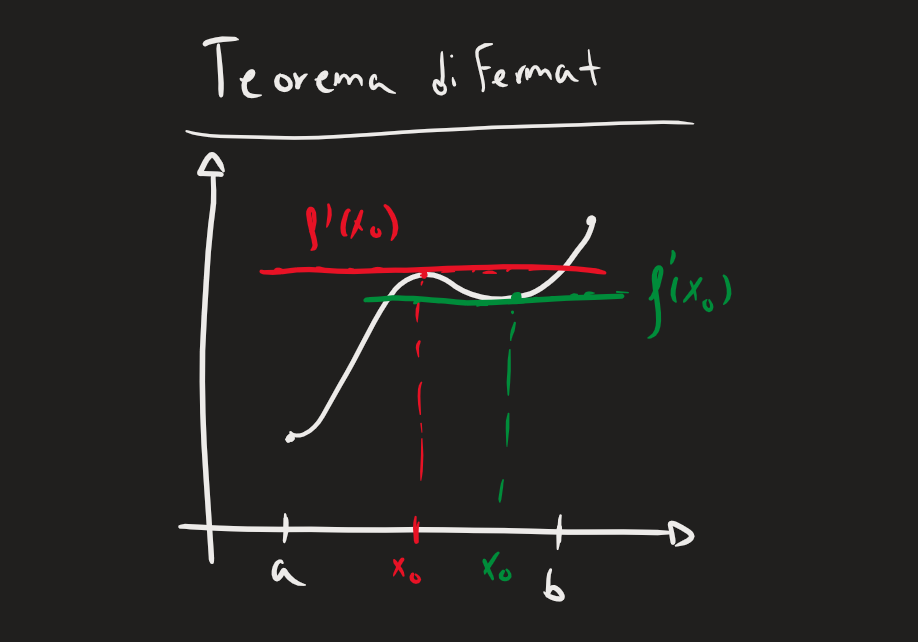 Teorema di Fermat
f'(x₀)
f'(x₀)
a
x₀
x₀
b